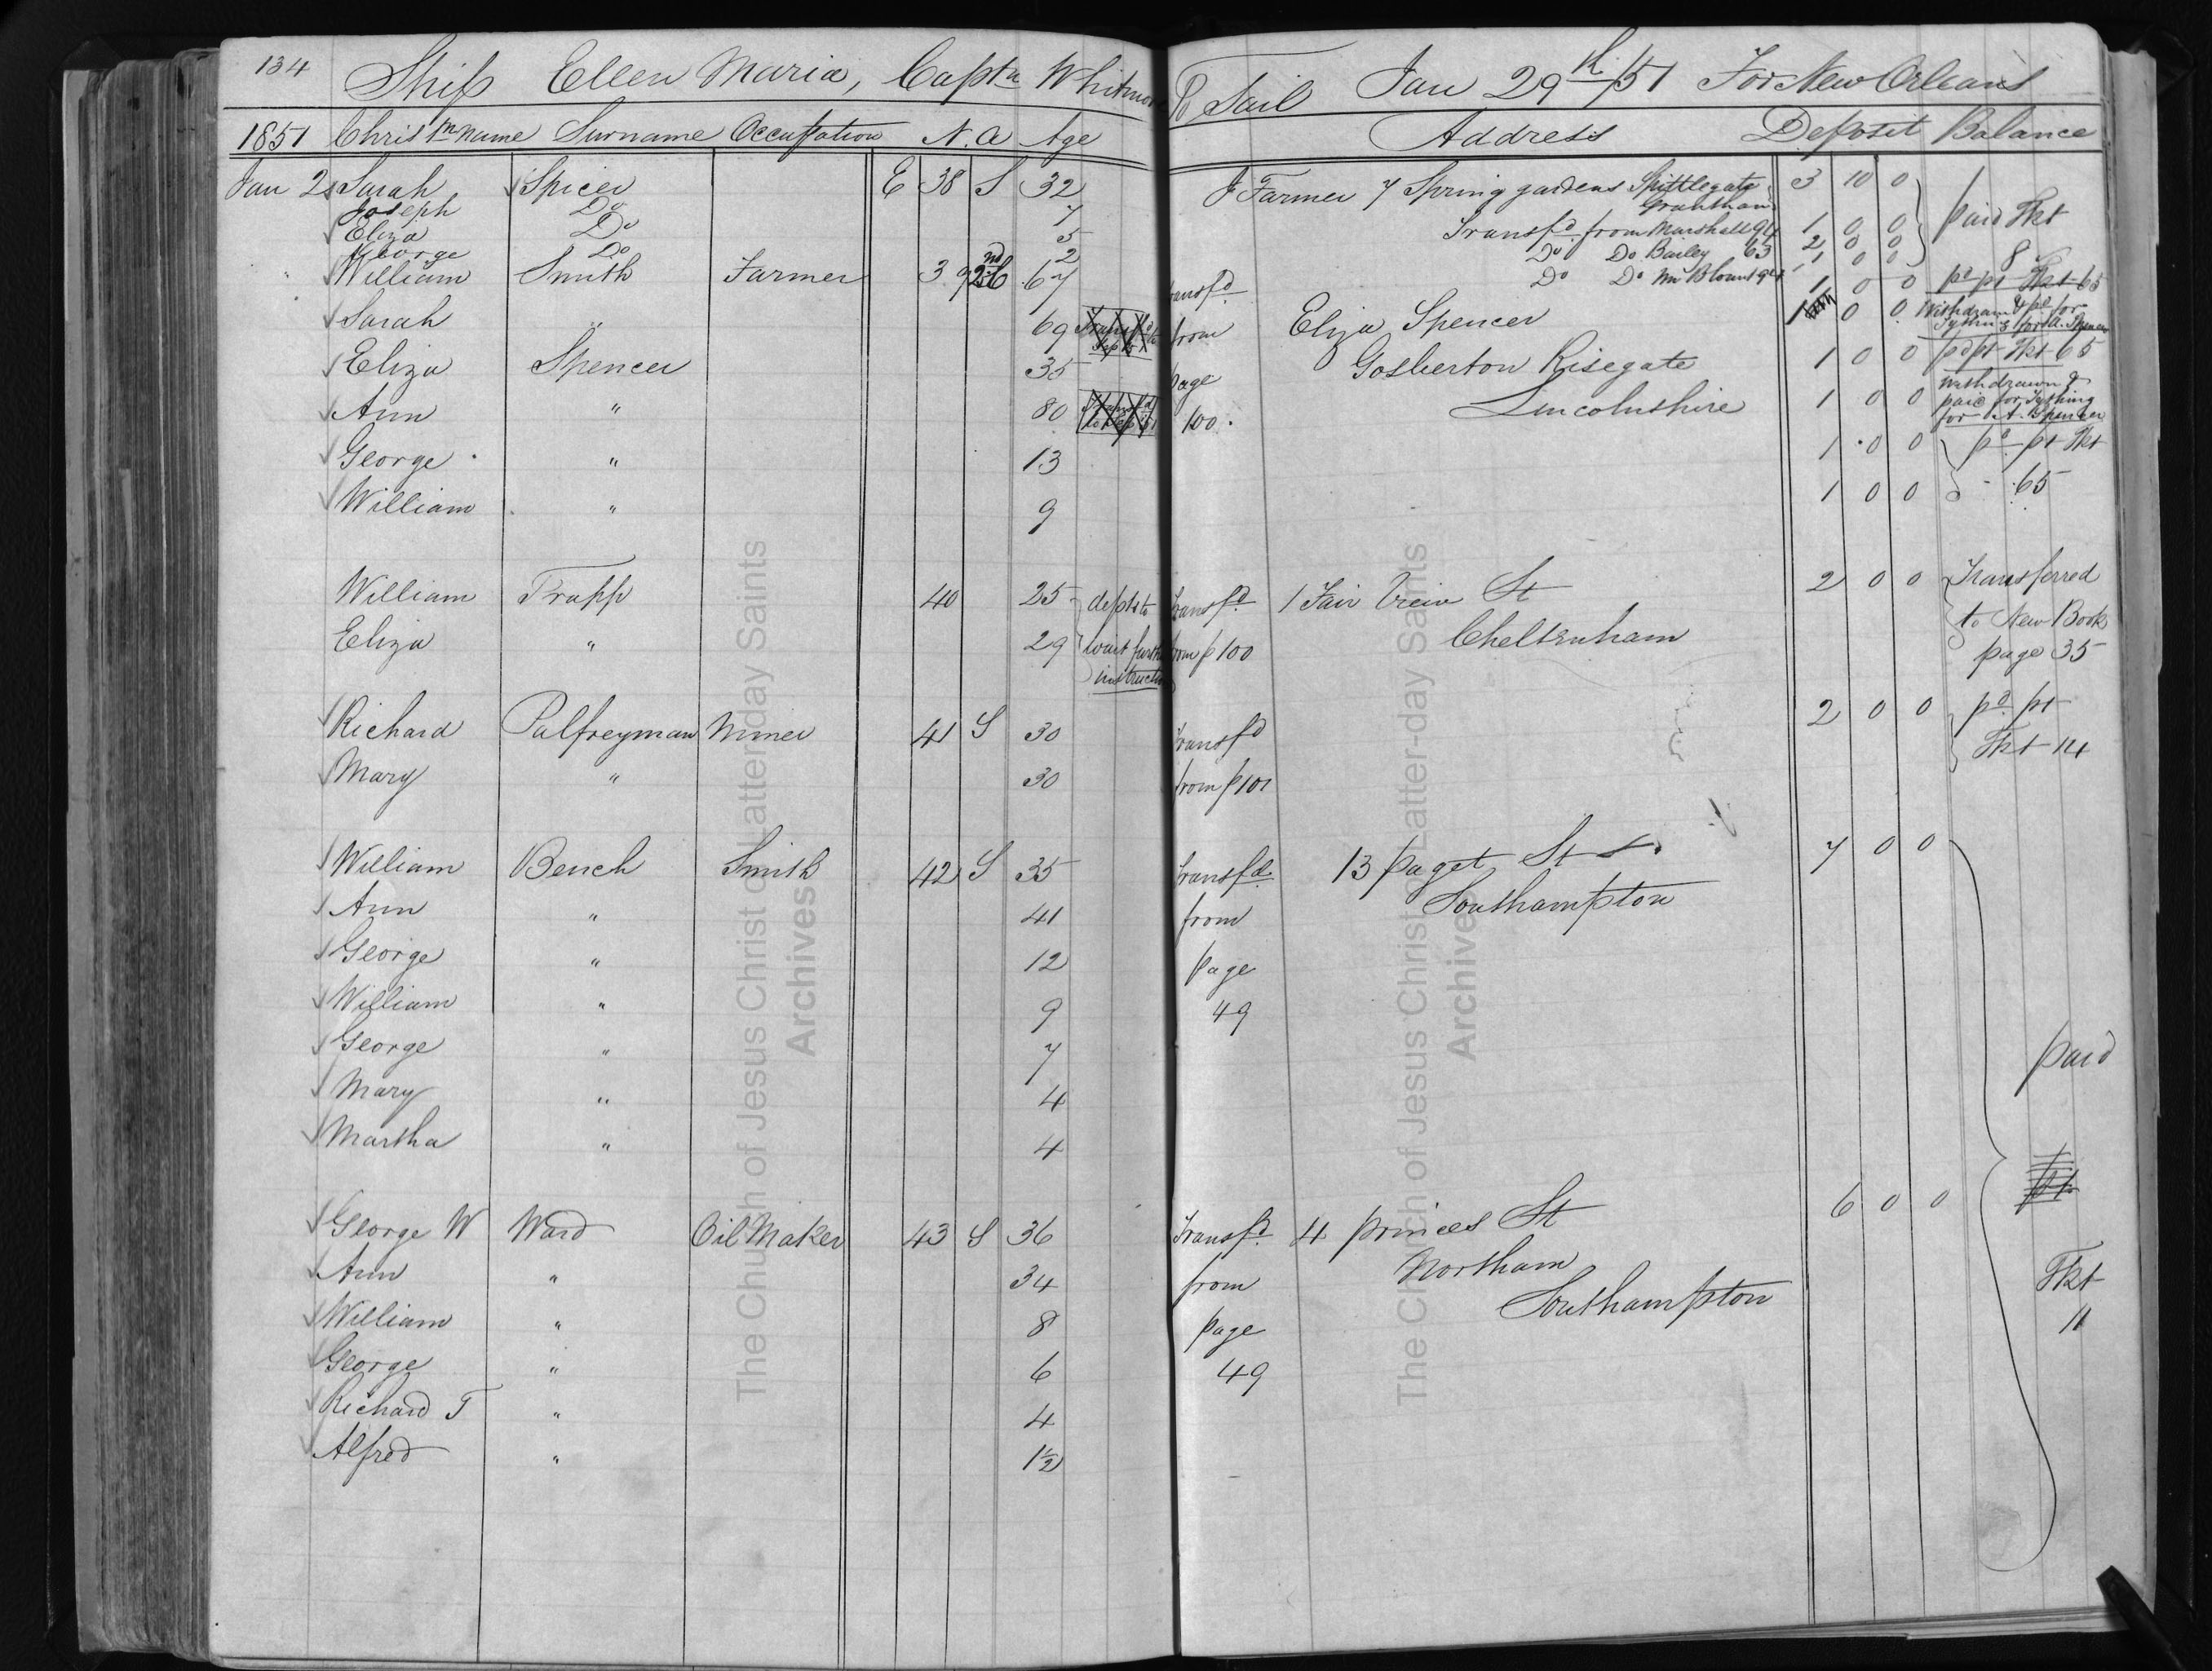 134 Ship Ellen Maria, Captn Whitmore To Sail Jan 29th/51 For New Orleans
1851 Christn Name Surname Occupation N. A Age Address Deposit Balance
Jan 2 Sarah Spicer E 38 S 32 J Farmer 7 Spring gardens Spittlegate 3 10 0 paid Tkt
Grantham
Joseph Do 7 Transfd from Marshall 94 1 0 0
Eliza Do 5 Do Do Bailey 63 2 0 0 8
George Do 2 Do Do Wm Blount 94 1 0 0
William Smith Farmer 39 2nd 67 Transfd 1 0 0 pd pt Tkt 65
Sarah " 69 from Eliza Spencer 1 0 0 Withdrawn & pd for
Tything for A. Spencer
Eliza Spencer 35 page Gosberton Risegate 1 0 0 pd pt Tkt 65
Ann " 80 100. Lincolnshire 1 0 0 Withdrawn &
paid for Tything
for A. Spencer
George " 13 1 0 0 pd pt Tkt
William " 9 1 0 0 65
William Trapp 40 25 depts to Transfd 1 Fair View St 2 0 0 Transferred
Eliza " 29 wait further from p 100 Cheltenham to New Book
instructions page 35
Richard Palfreyman Miner 41 S 30 Transfd 2 0 0 pd pt
Mary " 30 from p 101 Tkt 14
William Bench Smith 42 S 35 Transfd. 13 paget St 7 0 0
Ann " 41 from Southampton
George " 12 page
William " 9 49
George " 7 paid
Mary " 4
Martha " 4
George W Ward Oil Maker 43 S 36 Transfd. 4 princes St 6 0 0
Ann " 34 from Northam Tkt
William " 8 page Southampton 11
George " 6 49
Richard T " 4
Alfred " 1½
The Church of Jesus Christ of Latter-day Saints
Archives
The Church of Jesus Christ of Latter-day Saints
Archives